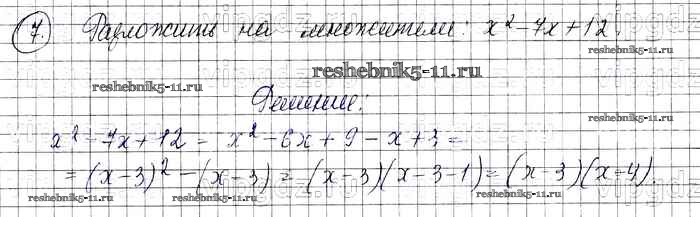 7. Разложить на множители: x² - 7x + 12.
reshebnik5-11.ru
reshebnik5-11.ru
reshebnik5-11.ru
Решение:
x² - 7x + 12 = x² - 6x + 9 - x + 3 =
= (x - 3)² - (x - 3) = (x - 3)(x - 3 - 1) = (x - 3)(x - 4).
reshebnik5-11.ru
reshebnik5-11.ru
reshebnik5-11.ru